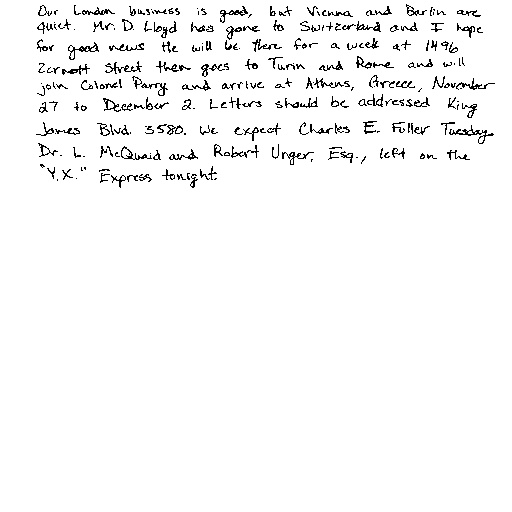 Our London business is good, but Vienna and Berlin are
quiet. Mr. D. Lloyd has gone to Switzerland and I hope
for good news He will be there for a week at 1496
Zermott Street then goes to Turin and Rome and will
join Colonel Parry and arrive at Athens, Greece, November
27 to December 2. Letters should be addressed King
James Blvd. 3580. We expect Charles E. Fuller Tuesday.
Dr. L. McQuaid and Robert Unger, Esq., left on the
"Y.X." Express tonight.